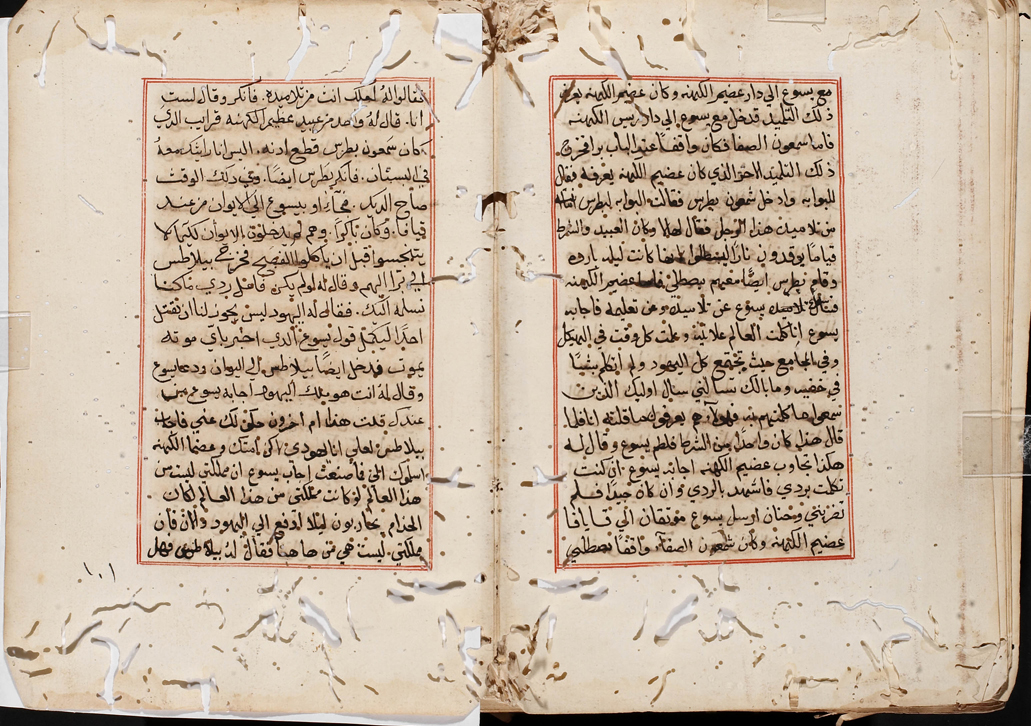 مع يسوع الي دار عضيم الكهنه وكان عضيم الكهنه يعرف
ذلك التلميد فدخل مع يسوع الي دار ريس الكهنه
فاما سمعون الصفا فكان واقفاً عند الباب برا فخرج
ذلك التلميد الاخر الذي كان عضيم الكهنه يعرفه فقال
للبوابه وادخل شمعون بطرس فقالت البوابه لبطرس
من تلاميد هذا الرجل فقال لها لا وكان العبيد والشرط
قياما يوقدون نارا ليصطلوا لانها كانت ليله بارده
وقام بطرس ايضاً معهم يصطلي عضيم الكهنه
يسوع عن تلاميده وعن تعليمه فاجابه
يسوع انا كلمت العالم علانيه وعلمت كل وقت في الهيكل
وفي المجامع حيث يجتمع كل اليهود ولم اتكلم بشياً
في خفيه وما بالك تسالني سال اوليك الذين
سمعوا ما كلمتهم به فهولاء هم يعرفوا ما قلته انا فلما
قال هذا كان واحداً من الشرط فلطم يسوع وقال له
هكذا تجاوب عضيم الكهنه اجابه يسوع ان كنت
تكلمت بردي فاشهد بالردي وان كان جيداً فلم
تضربني وحنان ارسل يسوع موتقاً الي قيافا
عضيم الكهنه وكان شمعون الصفاء واقفاً يصطلي
فقالوا له لعلك انت من تلاميده. فانكر وقال لست
انا. قال له واحد من عبيد عظيم الكهنه قرابب الذي
كان سمعون بطرس قطع ادنه. اليس انا رايتك معه
في البستان. فانكر بطرس ايضاً. وفي دلك الوقت
صاح الديك. فجاءوا بيسوع الي الايوان من عند
قيافا. وكان باكراً. وهم لم يدخلوا الايوان لكيما لا
يتنجسوا قبل ان ياكلوا الفصح فخرج بيلاطس
الي برا اليهم وقال له لو لم يكن فاعل ردي ماكنا
نسلمه اليك. فقالي له اليهود ليس يجوز لنا ان نقتل
احداً ليكمل قول يسوع الذي اخبر باي موته
يموت فدخل ايضاً بيلاطس الي اليوان ودعا يسوع
وقال له انت هو ملك اليهود اجابه يسوع من
عندك قلت هذا ام اخرون حكوا لك عني فاجاب
بيلاطس لعلي انا يهودي امتك وعضما الكهنه
اسلموك الي فما صنعت اجاب يسوع ان مملكتي ليست من
هذا العالم لو كانت مملكتي من هذا العالم لكان
الخدام يحاربون ليلا ادفع الي اليهود والان فان
مملكتي ليست هي من هاهنا فقال له بيلاطس فهل
١٠١